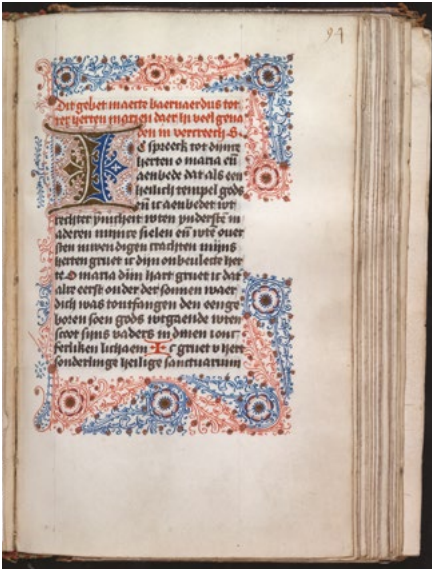 94
Dit gebet maecte baernaerdus tot
ter herten marien daer hi veel gena
den in vercreech S.
IC spreek tot dijnre
herten o maria eñ
aenbede dat als een
heilich tempel gods
eñ ic aenbedet wt
rechter ynicheit wten ynderstē in
aderen mijnre sielen eñ wtē over
sten inwendigen crachten mijns
herten gruet ic dijn onbevlecte her
te O maria dijn hart gruet ic dat
alre eerst onder der sonnen waer
dich was tontfangen den eenge
boren soen gods wtgaende wten
scoot sijns vaders in dinen ionc
ferliken lichaem Ic gruet v hert
sonderlinge heilige sanctuarium